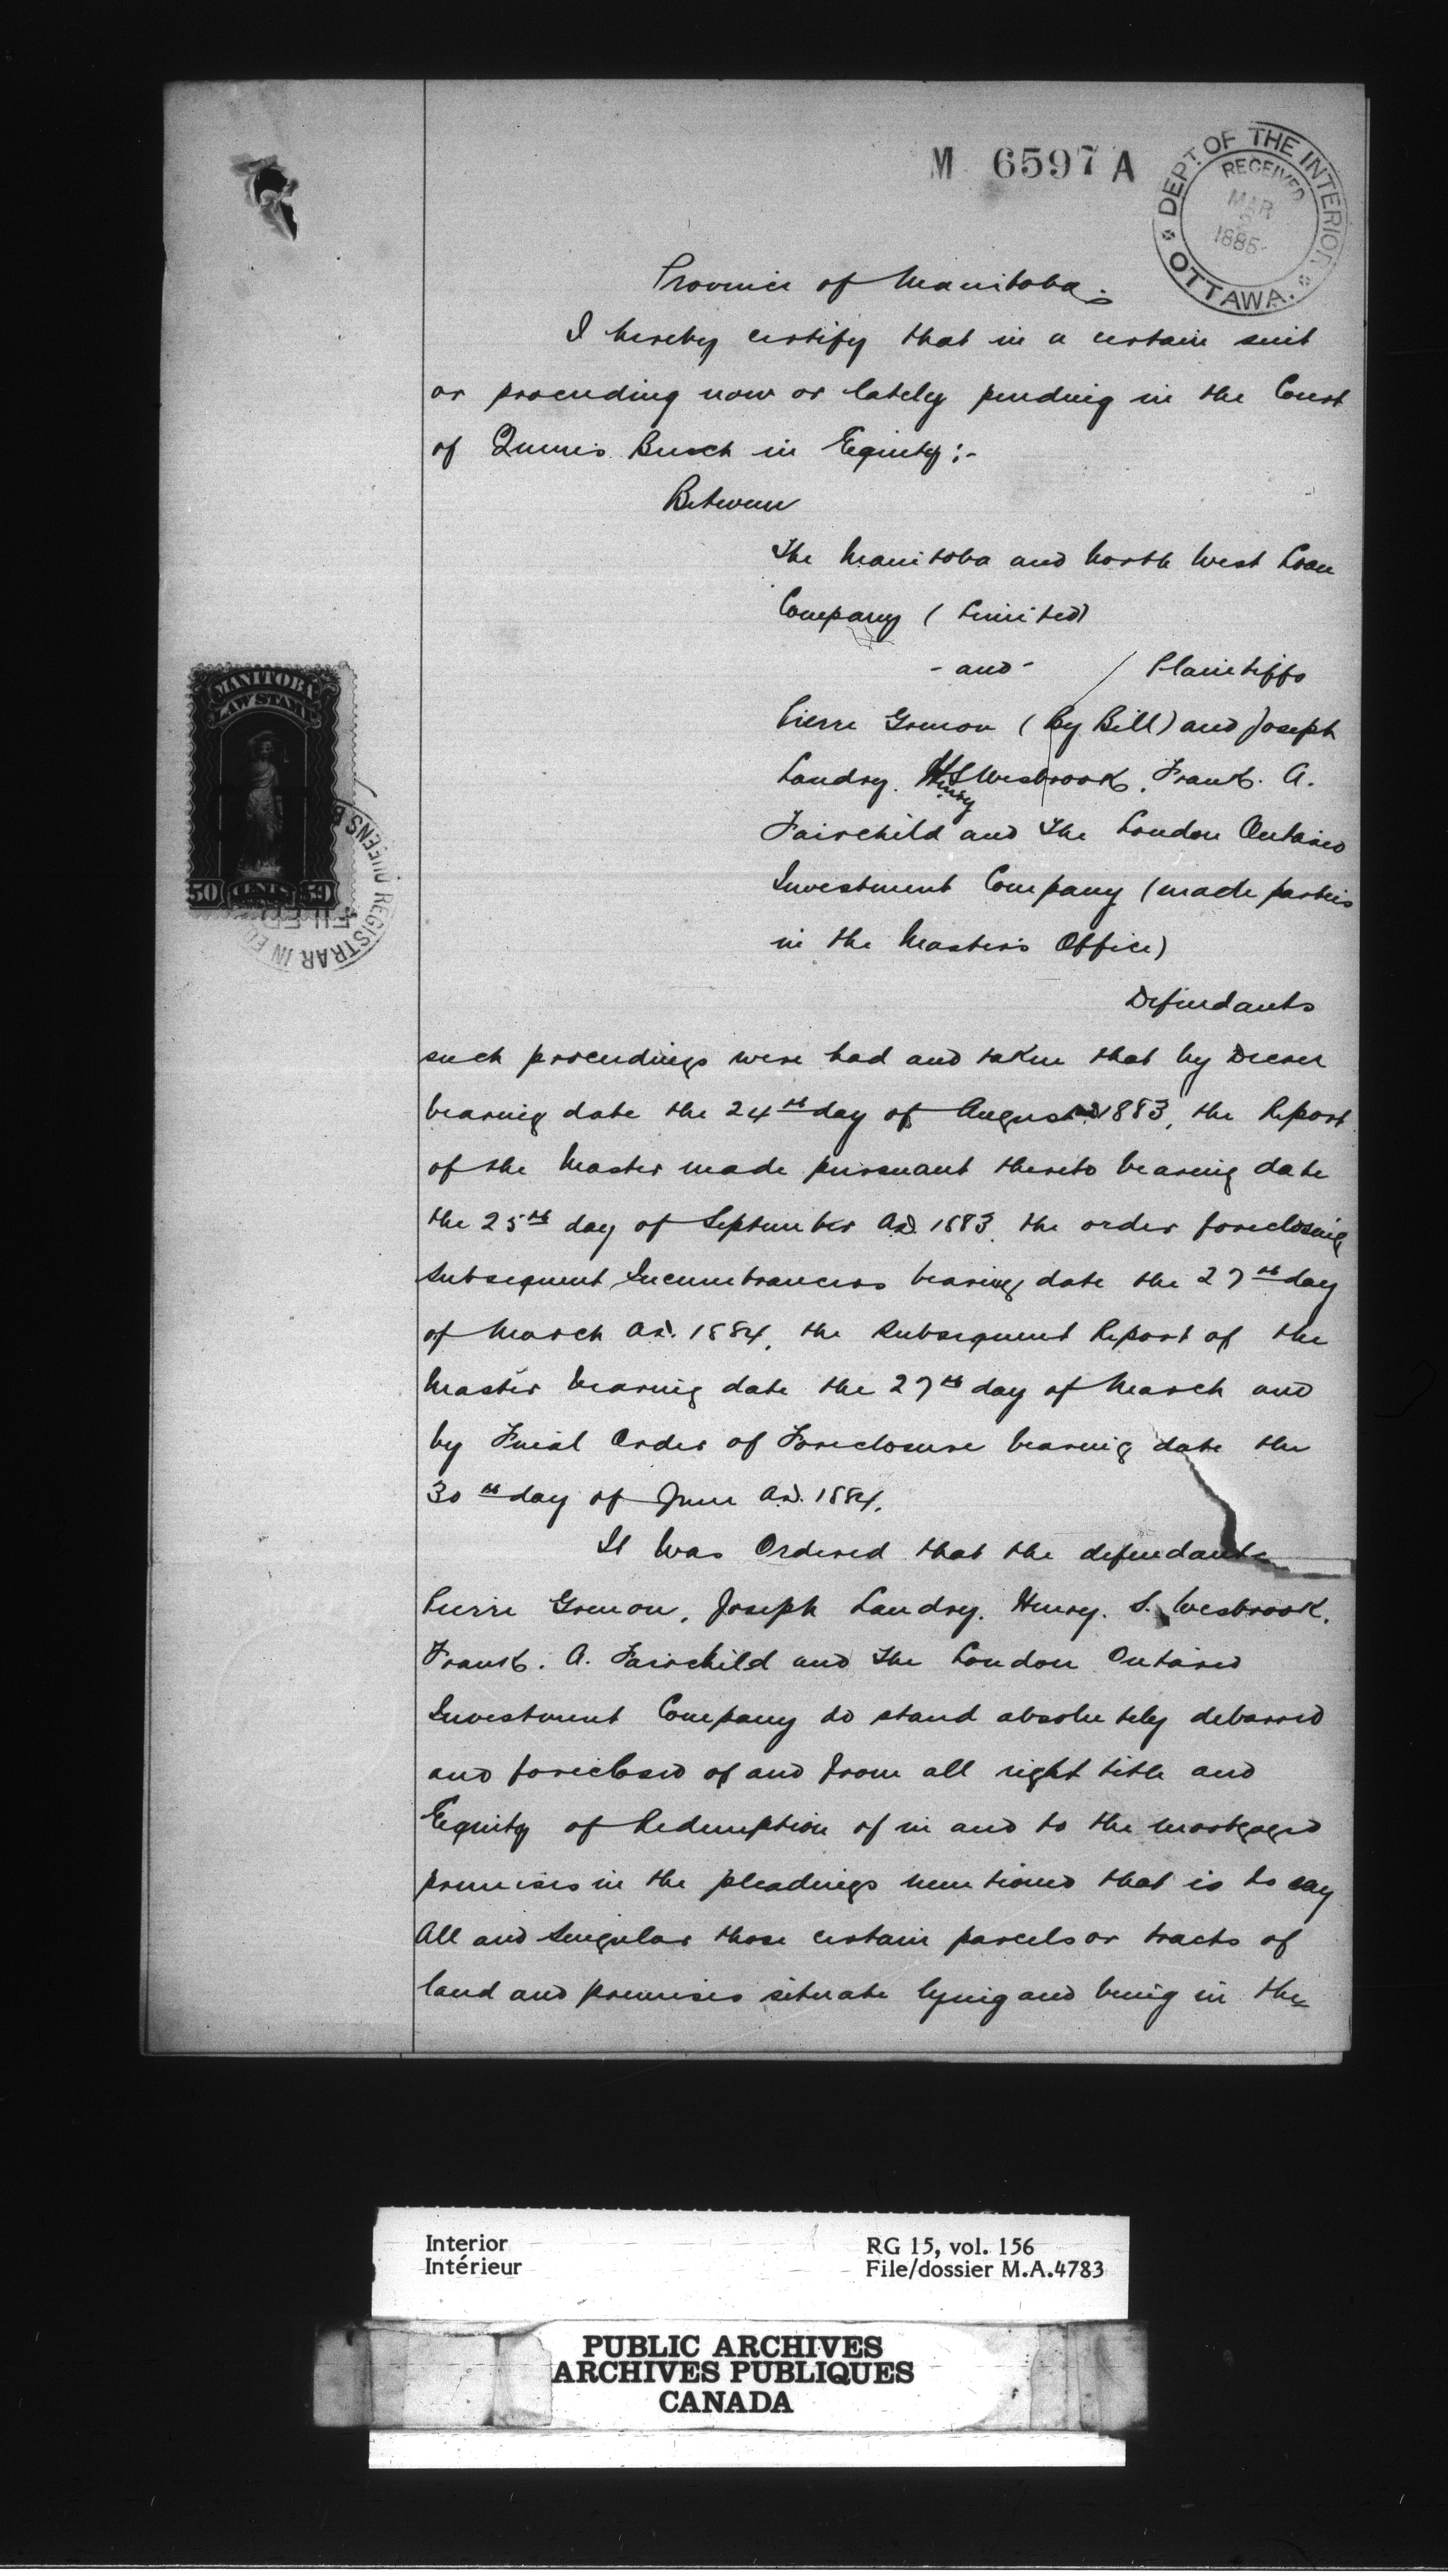 M 6597 A
DEPT. OF THE INTERIOR
RECEIVED
MAR
2
1885
OTTAWA.
Province of Manitoba.
I hereby certify that in a certain suit
or proceeding now or lately pending in the Court
of Queen's Bench in Equity:-
Between
The Manitoba and North West Loan
Company (Limited)
- and - Plaintiffs
Pierre Grenon (by Bill) and Joseph
Landry. Henry S Wesbrook, Frank. A.
Fairchild and The London Ontario
Investment Company (made parties
in the Master's Office)
Defendants
MANITOBA
LAW STAMP
50 CENTS 50
REGISTRAR IN QUEENS B
FILED
such proceedings were had and taken that by Decree
bearing date the 24th day of August AD 1883, the Report
of the Master made pursuant thereto bearing date
the 25th day of September A.D. 1883, the order foreclosing
subsequent Incumbrancers bearing date the 27th day
of March A.D. 1884, the Subsequent Report of the
Master bearing date the 27th day of March and
by Final Order of Foreclosure bearing date the
30th day of June A.D. 1884.
It Was Ordered that the defendants
Pierre Grenon, Joseph Landry. Henry. S. Wesbrook,
Frank. A. Fairchild and The London Ontario
Investment Company do stand absolutely debarred
and foreclosed of and from all right title and
Equity of Redemption of in and to the mortgaged
premises in the pleadings mentioned that is to say
All and Singular those certain parcels or tracts of
land and premises situate lying and being in the
Interior RG 15, vol. 156
Intérieur File/dossier M.A.4783
PUBLIC ARCHIVES
ARCHIVES PUBLIQUES
CANADA